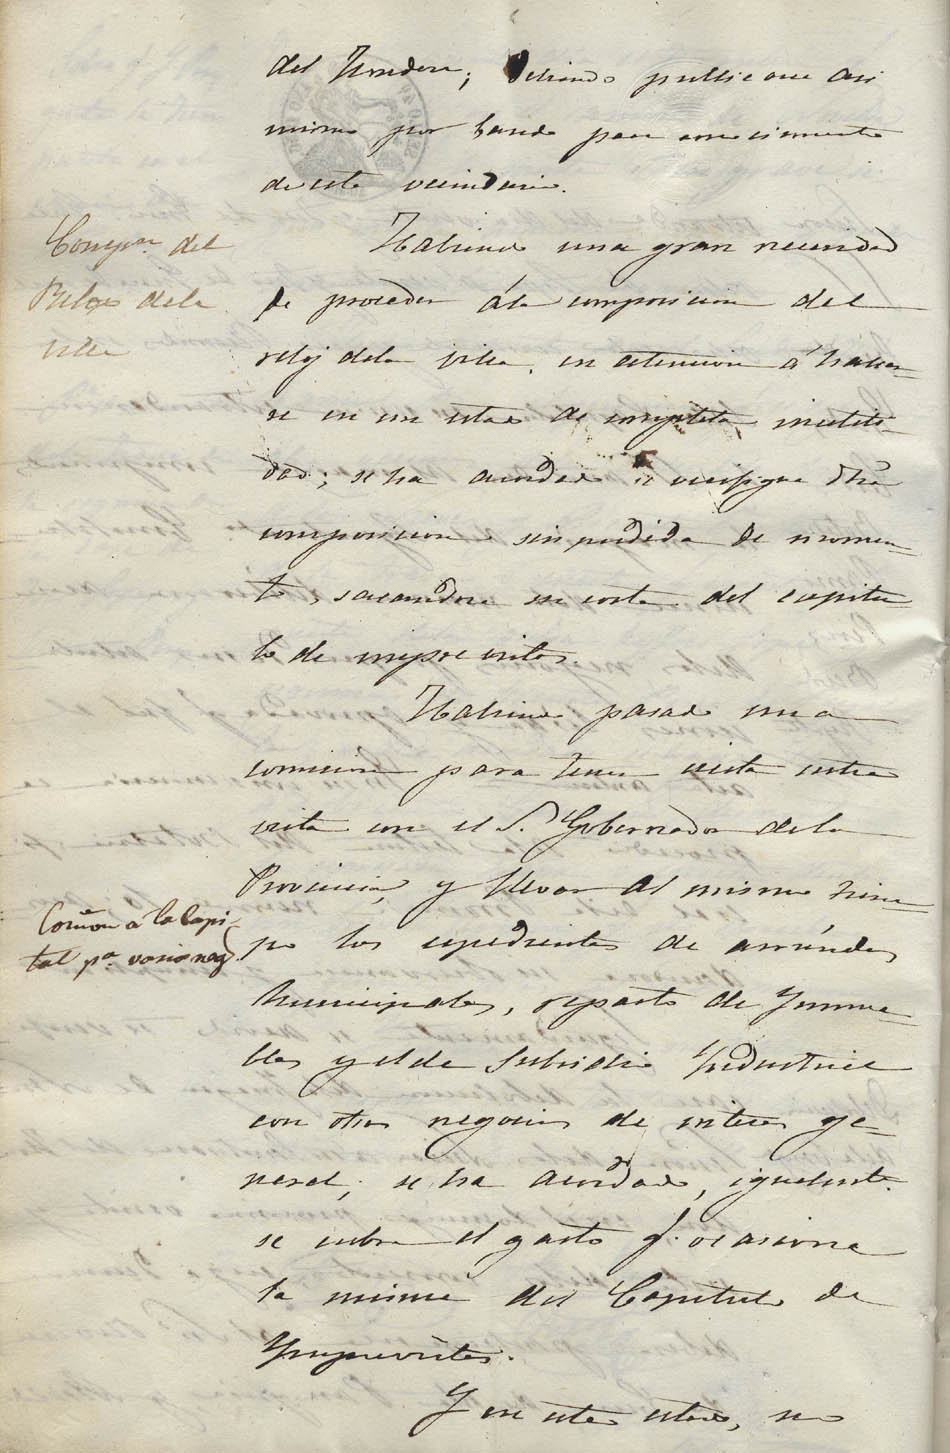 del Tenedor; debiendo publicarse asi
mismo por bando para conocimiento
de este vecindario.
Compon. del
Relox dela
villa
Habiendo una gran necesidad
de proceder ála composicion del
reloj dela villa, en atencion á hallar-
se en un estado de completa inutili-
dad; se ha acordado se verifique dha
composicion sin perdida de momen-
to, sacandose su coste del capitu
lo de imprevistos.
Habiendo pasado una
comision para tener vista entre
vista con el Sr. Gobernador dela
Provincia, y llevar al mismo tiem
Comon a la Capi-
tal pa. varios neg.
po los espedientes de arriendos
Municipales, reparto de Ynmue-
bles y el de Subsidio Yndustrial
con otros negocios de interes ge-
neral; se ha acordado, igualmte.
se cubra el gasto q. ocasiona
la misma del Capitulo de
Ymprevistos.
Y en este estado, no